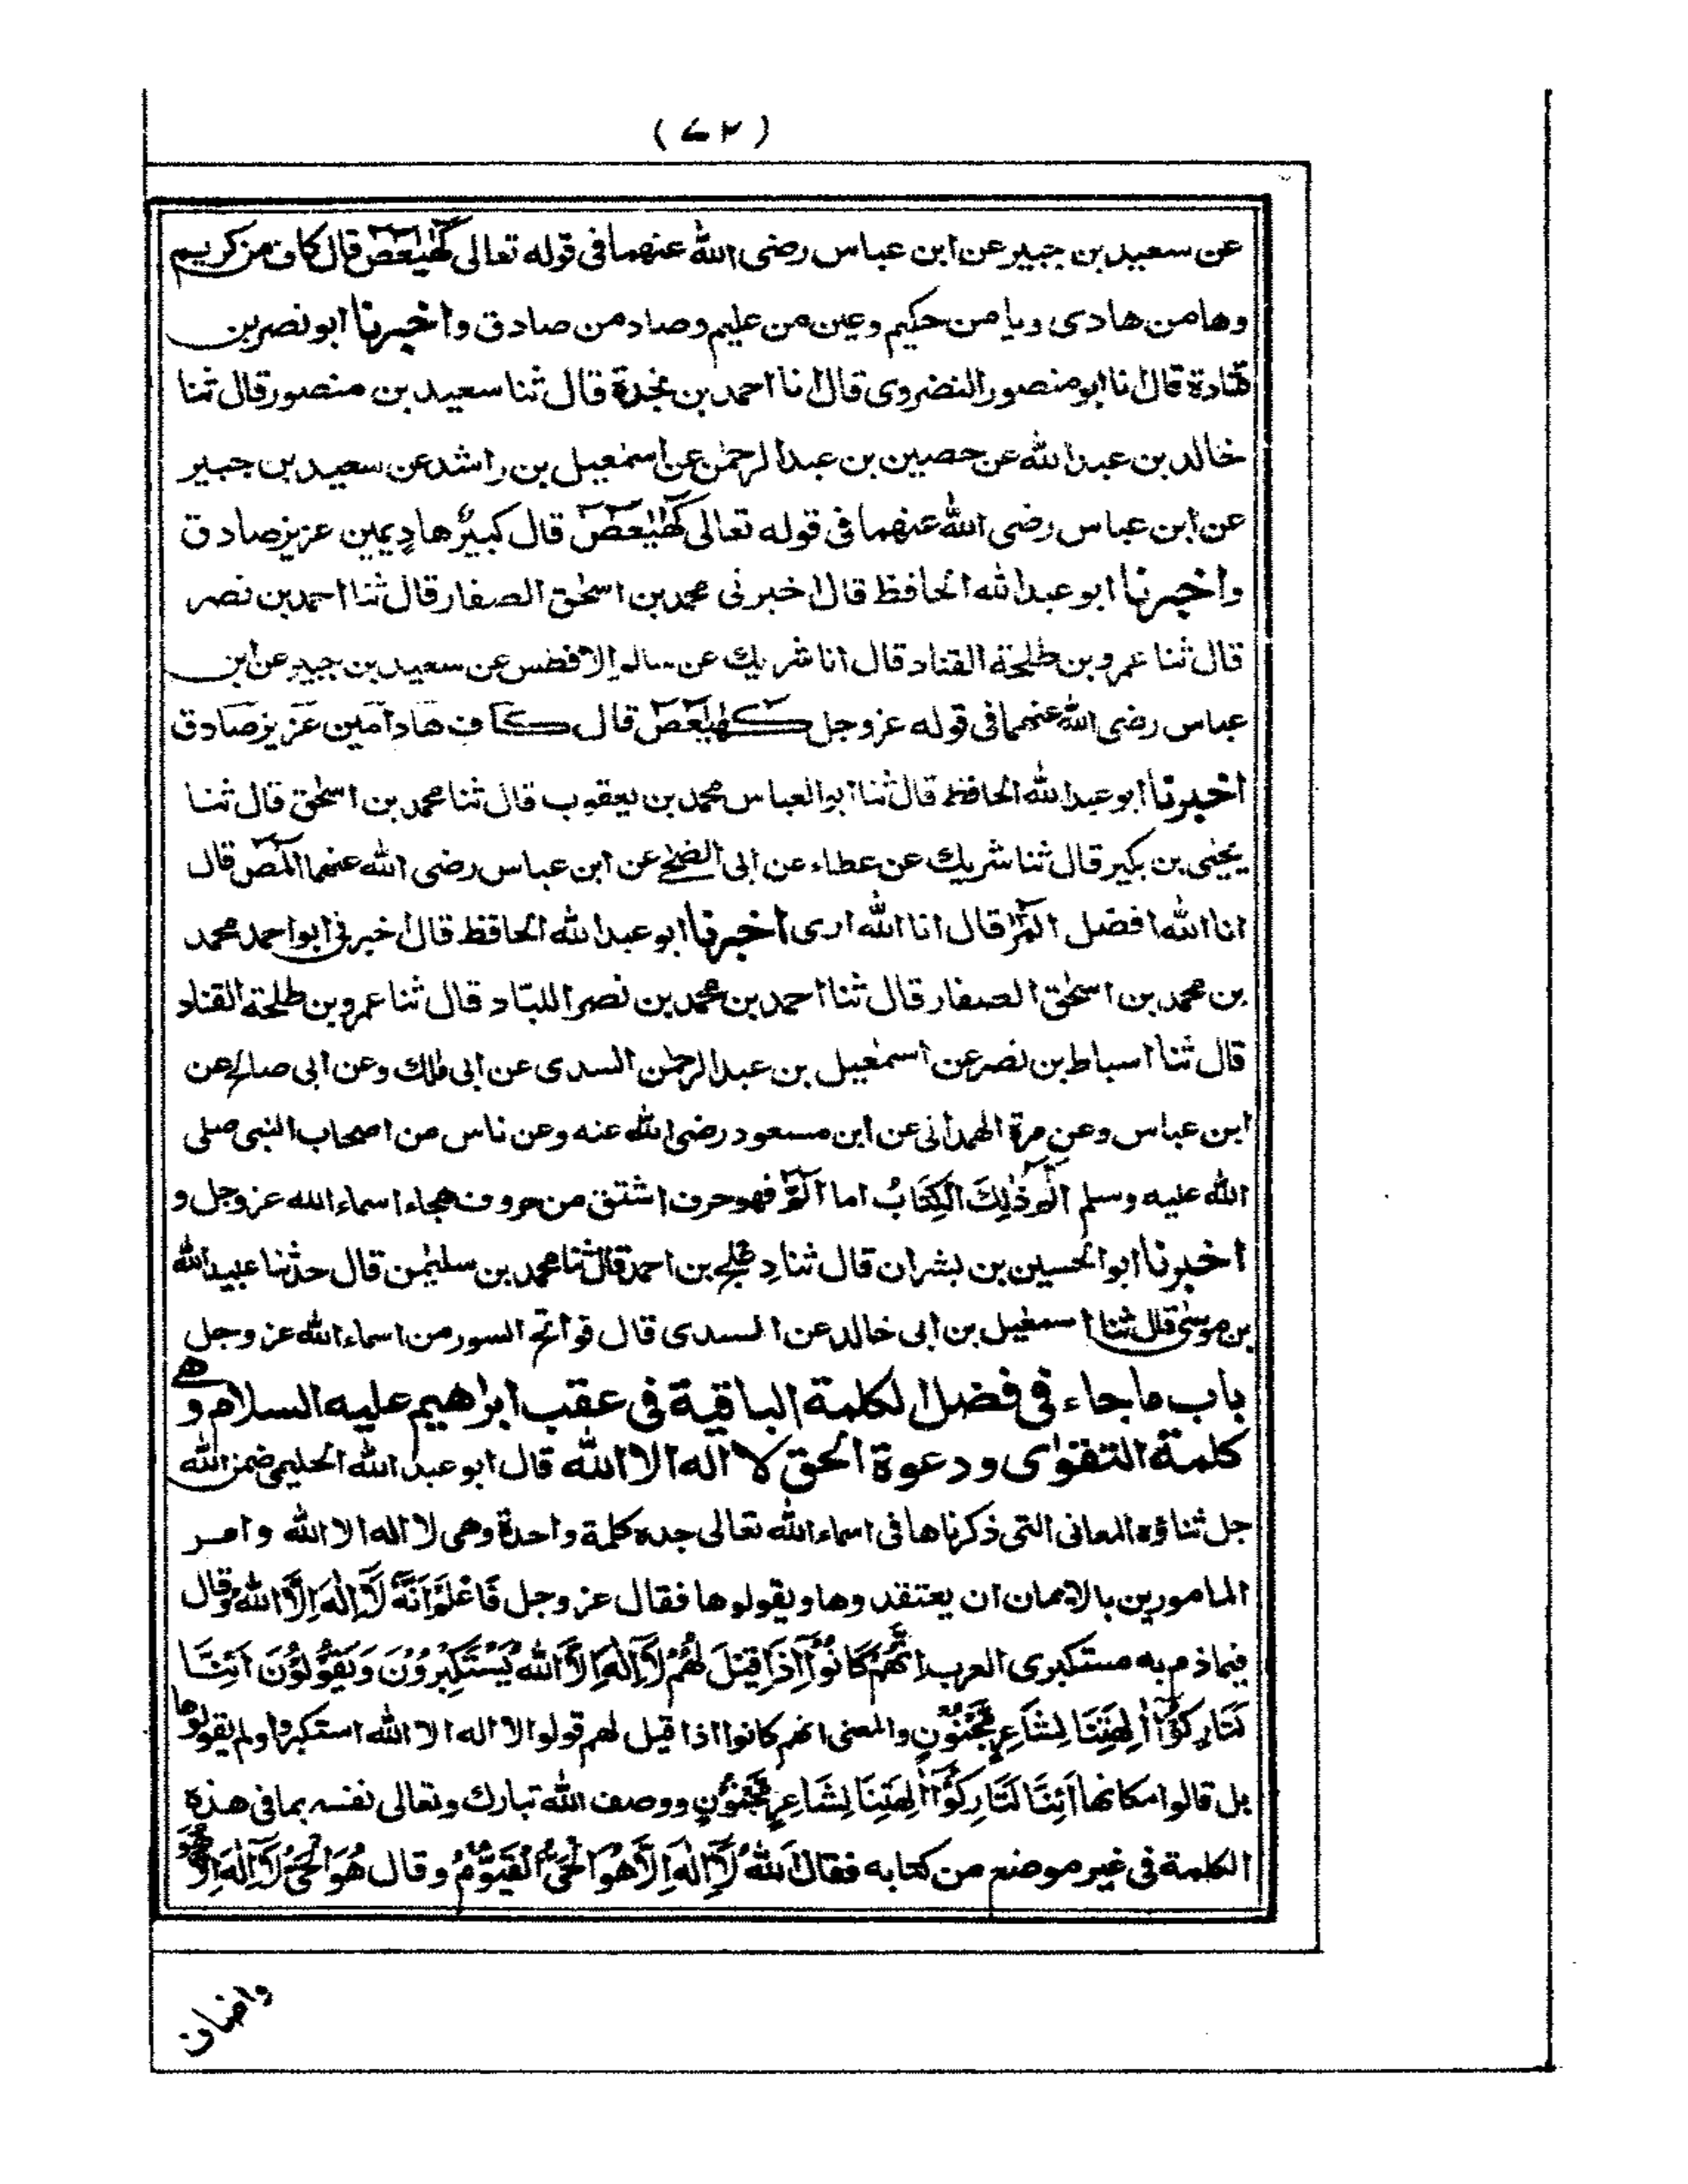 (٧٢)
عن سعيد بن جبير عن ابن عباس رضى الله عنهما فى قوله تعالى كهيعص قال كاف من كريم
وها من هادى ويا من حكيم وعين من عليم وصاد من صادق واخبرنا ابو نصر بن
قتادة قال انا ابو منصور النضروى قال انا احمد بن نجدة قال ثنا سعيد بن منصور قال ثنا
خالد بن عبد الله عن حصين بن عبد الرحمٰن عن اسمٰعيل بن راشد عن سعيد بن جبير
عن ابن عباس رضى الله عنهما فى قوله تعالى كهيعص قال كبيرٌ هادٍ يمين عزيز صادق
واخبرنا ابو عبد الله الحافظ قال اخبرنى محمد بن اسحٰق الصفار قال ثنا احمد بن نصر
قال ثنا عمرو بن طلحة القناد قال انا شريك عن سالم الافطس عن سعيد بن جبير عن ابن
عباس رضى الله عنهما فى قوله عز وجل كهيعص قال كاف هاد امين عزيز صادق
اخبرنا ابو عبد الله الحافظ قال ثنا ابو العباس محمد بن يعقوب قال ثنا محمد بن اسحٰق قال ثنا
يحيٰى بن بكير قال ثنا شريك عن عطاء عن ابى الضحٰى عن ابن عباس رضى الله عنهما المص قال
انا الله افضل المر قال انا الله ارى اخبرنا ابو عبد الله الحافظ قال اخبرنى ابو احمد محمد
بن محمد بن اسحٰق الصفار قال ثنا احمد بن محمد بن نصر اللبّاد قال ثنا عمرو بن طلحة القناد
قال ثنا اسباط بن نصر عن اسمٰعيل بن عبد الرحمٰن السدى عن ابى مٰلك وعن ابى صالح عن
ابن عباس وعن مرة الهمدانى عن ابن مسعود رضى الله عنه وعن ناس من اصحاب النبى صلى
الله عليه وسلم الٓمٓ ذٰلِكَ الْكِتَابُ اما الٓمٓ فهو حرف اشتق من حروف هجاء اسماء الله عز وجل و
اخبرنا ابو الحسين بن بشران قال ثنا دعلج بن احمد قال ثنا محمد بن سليمٰن قال حدثنا عبيد الله
بن موسٰى قال ثنا اسمٰعيل بن ابى خالد عن السدى قال فواتح السور من اسماء الله عز وجل
باب ما جاء فى فضل الكلمة الباقية فى عقب ابراهيم عليه السلام وهى
كلمة التقوٰى ودعوة الحق لا اله الا الله قال ابو عبد الله الحليمى ضمن الله
جل ثناؤه المعانى التى ذكرناها فى اسماء الله تعالى جده كلمة واحدة وهى لا اله الا الله وامر
المامورين بالايمان ان يعتقدوها ويقولوها فقال عز وجل فَاعْلَمْ اَنَّهٗ لَآ اِلٰهَ اِلَّا اللهُ وقال
فيما ذم به مستكبرى العرب اِنَّهُمْ كَانُوْٓا اِذَا قِيْلَ لَهُمْ لَآ اِلٰهَ اِلَّا اللهُ يَسْتَكْبِرُوْنَ وَيَقُوْلُوْنَ اَئِنَّا
لَتَارِكُوْٓا اٰلِهَتِنَا لِشَاعِرٍ مَّجْنُوْنٍ والمعنى انهم كانوا اذا قيل لهم قولوا لا اله الا الله استكبروا ولم يقولوها
بل قالوا مكانها اَئِنَّا لَتَارِكُوْٓا اٰلِهَتِنَا لِشَاعِرٍ مَّجْنُوْنٍ ووصف الله تبارك وتعالى نفسه بما فى هذه
الكلمة فى غير موضع من كتابه فقال اَللهُ لَآ اِلٰهَ اِلَّا هُوَ الْحَىُّ الْقَيُّوْمُ وقال هُوَ الْحَىُّ لَآ اِلٰهَ اِلَّا هُوَ